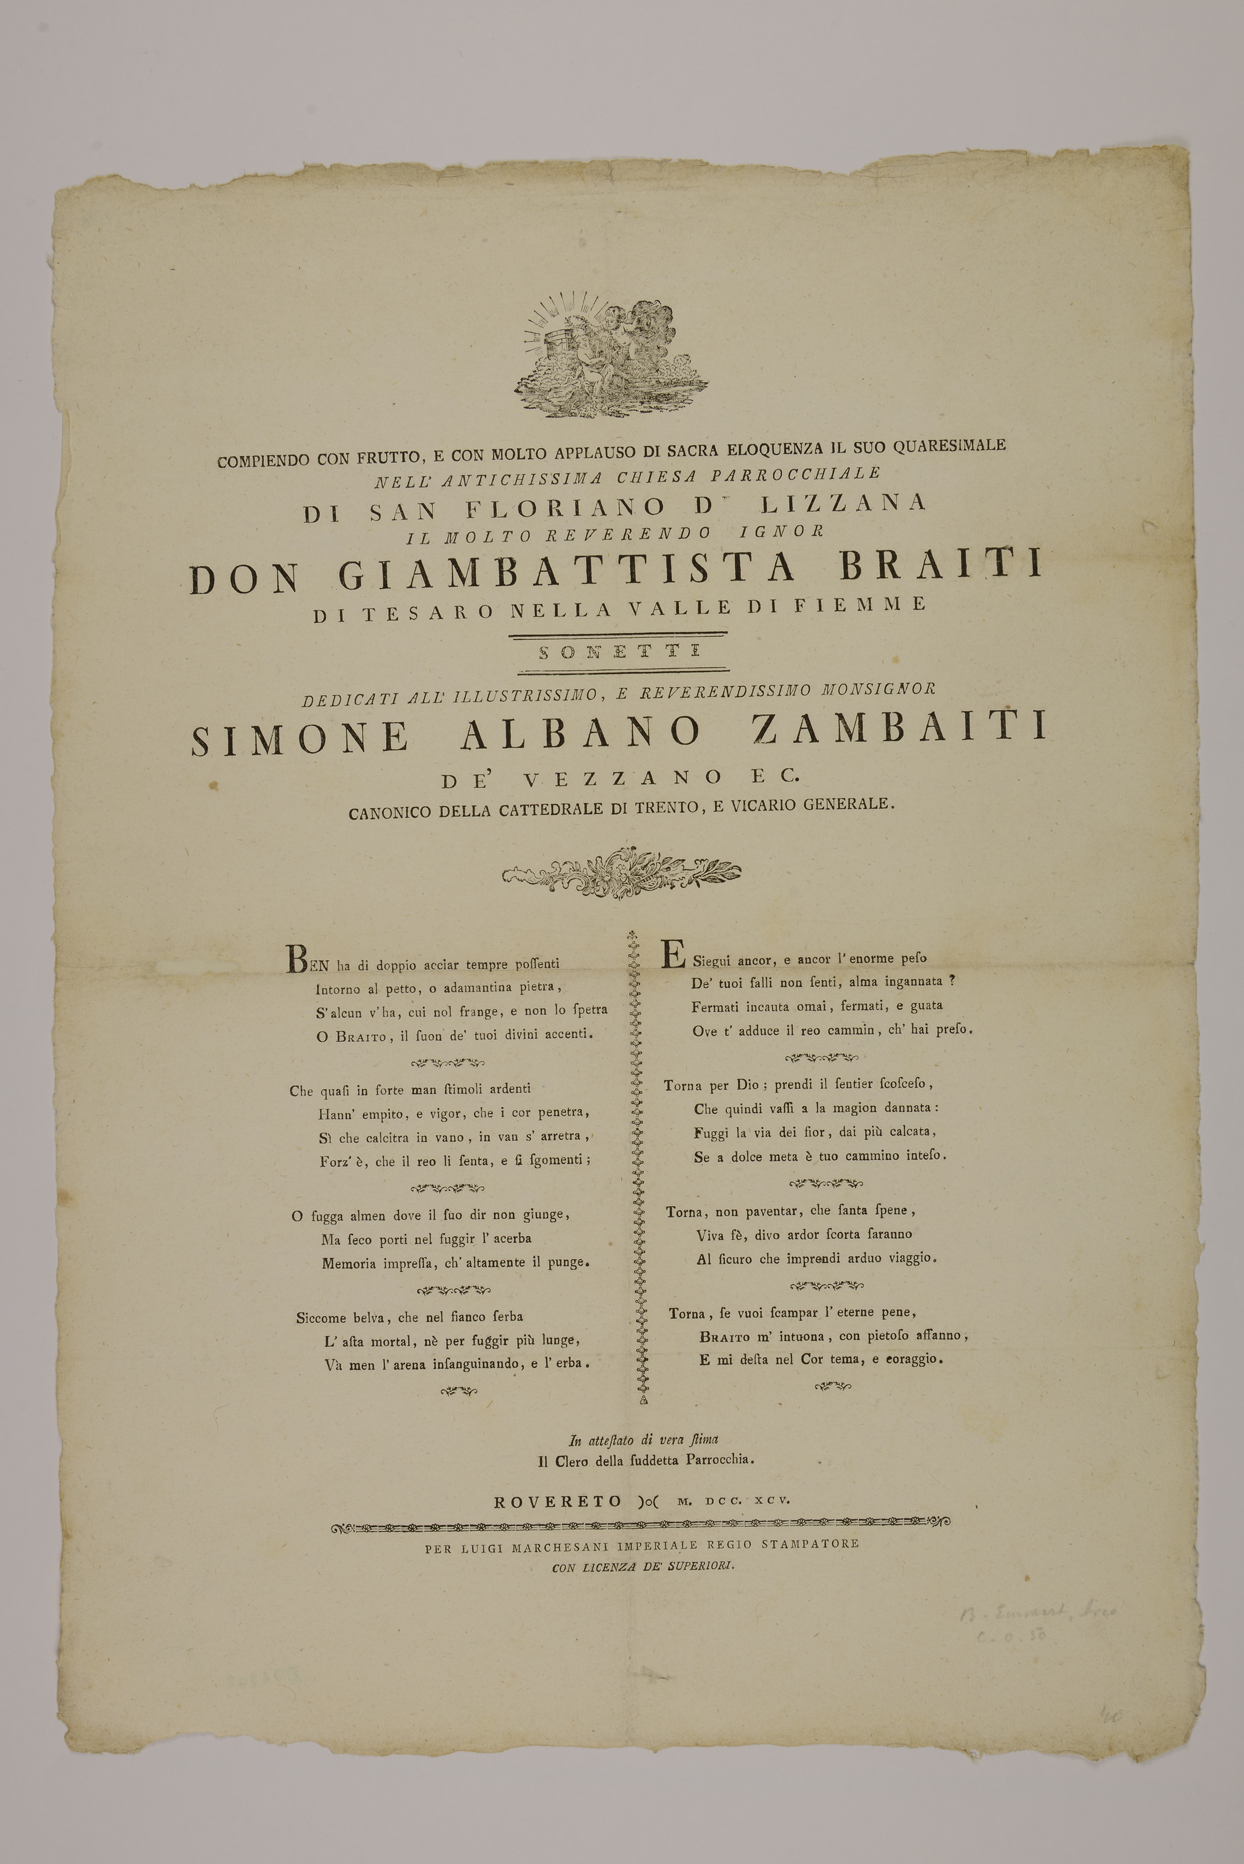 COMPIENDO CON FRUTTO, E CON MOLTO APPLAUSO DI SACRA ELOQUENZA IL SUO QUARESIMALE
NELL' ANTICHISSIMA CHIESA PARROCCHIALE
DI SAN FLORIANO D' LIZZANA
IL MOLTO REVERENDO IGNOR
DON GIAMBATTISTA BRAITI
DI TESARO NELLA VALLE DI FIEMME
SONETTI
DEDICATI ALL' ILLUSTRISSIMO, E REVERENDISSIMO MONSIGNOR
SIMONE ALBANO ZAMBAITI
DE' VEZZANO EC.
CANONICO DELLA CATTEDRALE DI TRENTO, E VICARIO GENERALE.
BEN ha di doppio acciar tempre poſſenti
Intorno al petto, o adamantina pietra,
S'alcun v'ha, cui nol frange, e non lo ſpetra
O BRAITO, il ſuon de' tuoi divini accenti.
Che quaſi in forte man ſtimoli ardenti
Hann' empito, e vigor, che i cor penetra,
Sì che calcitra in vano, in van s' arretra,
Forz' è, che il reo li ſenta, e ſi ſgomenti;
O fugga almen dove il ſuo dir non giunge,
Ma ſeco porti nel fuggir l' acerba
Memoria impreſſa, ch' altamente il punge.
Siccome belva, che nel fianco ſerba
L' aſta mortal, nè per fuggir più lunge,
Và men l' arena inſanguinando, e l' erba.
E Siegui ancor, e ancor l' enorme peſo
De' tuoi falli non ſenti, alma ingannata ?
Fermati incauta omai, fermati, e guata
Ove t' adduce il reo cammin, ch' hai preſo.
Torna per Dio; prendi il ſentier ſcoſceſo,
Che quindi vaſſi a la magion dannata:
Fuggi la via dei fior, dai più calcata,
Se a dolce meta è tuo cammino inteſo.
Torna, non paventar, che ſanta ſpene,
Viva fè, divo ardor ſcorta ſaranno
Al ſicuro che imprendi arduo viaggio.
Torna, ſe vuoi ſcampar l' eterne pene,
BRAITO m' intuona, con pietoſo affanno,
E mi deſta nel Cor tema, e coraggio.
In atteſtato di vera ſtima
Il Clero della ſuddetta Parrocchia.
ROVERETO )o( M. DCC. XCV.
PER LUIGI MARCHESANI IMPERIALE REGIO STAMPATORE
CON LICENZA DE' SUPERIORI.